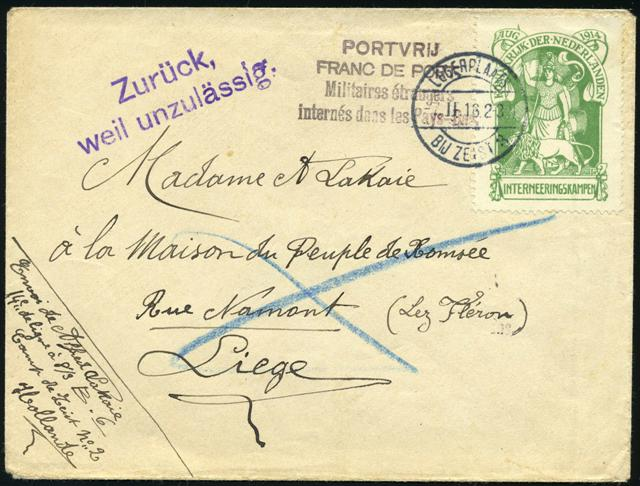 Zurück,
weil unzulässig.
PORTVRIJ
FRANC DE PORT
Militaires étrangers
internés dans les Pays-Bas
LEGERPLAATS
BIJ ZEIST
AUG. 1914
KONINKRIJK·DER·NEDERLANDEN
INTERNEERINGSKAMPEN
Madame A Lakaie
à la Maison du Peuple de Romsée
Rue Namont (Lez Fléron)
Liege
Envoi de Alfred Lakaie
14e de ligne à 8/3 B. 6
Camp de Zeist No. 2
Hollande